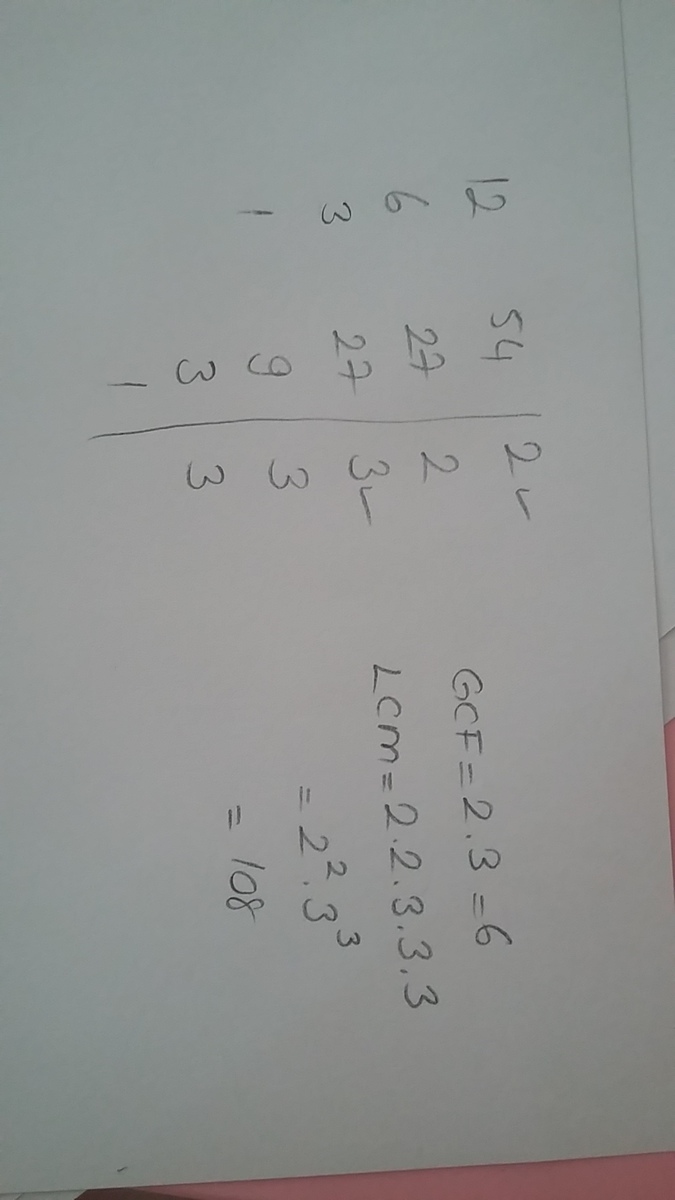 12 54 | 2 ✓
6 27 | 2
3 27 | 3 ✓
1 9 | 3
3 | 3
1
GCF = 2.3 = 6
LCM = 2.2.3.3.3
= 2².3³
= 108